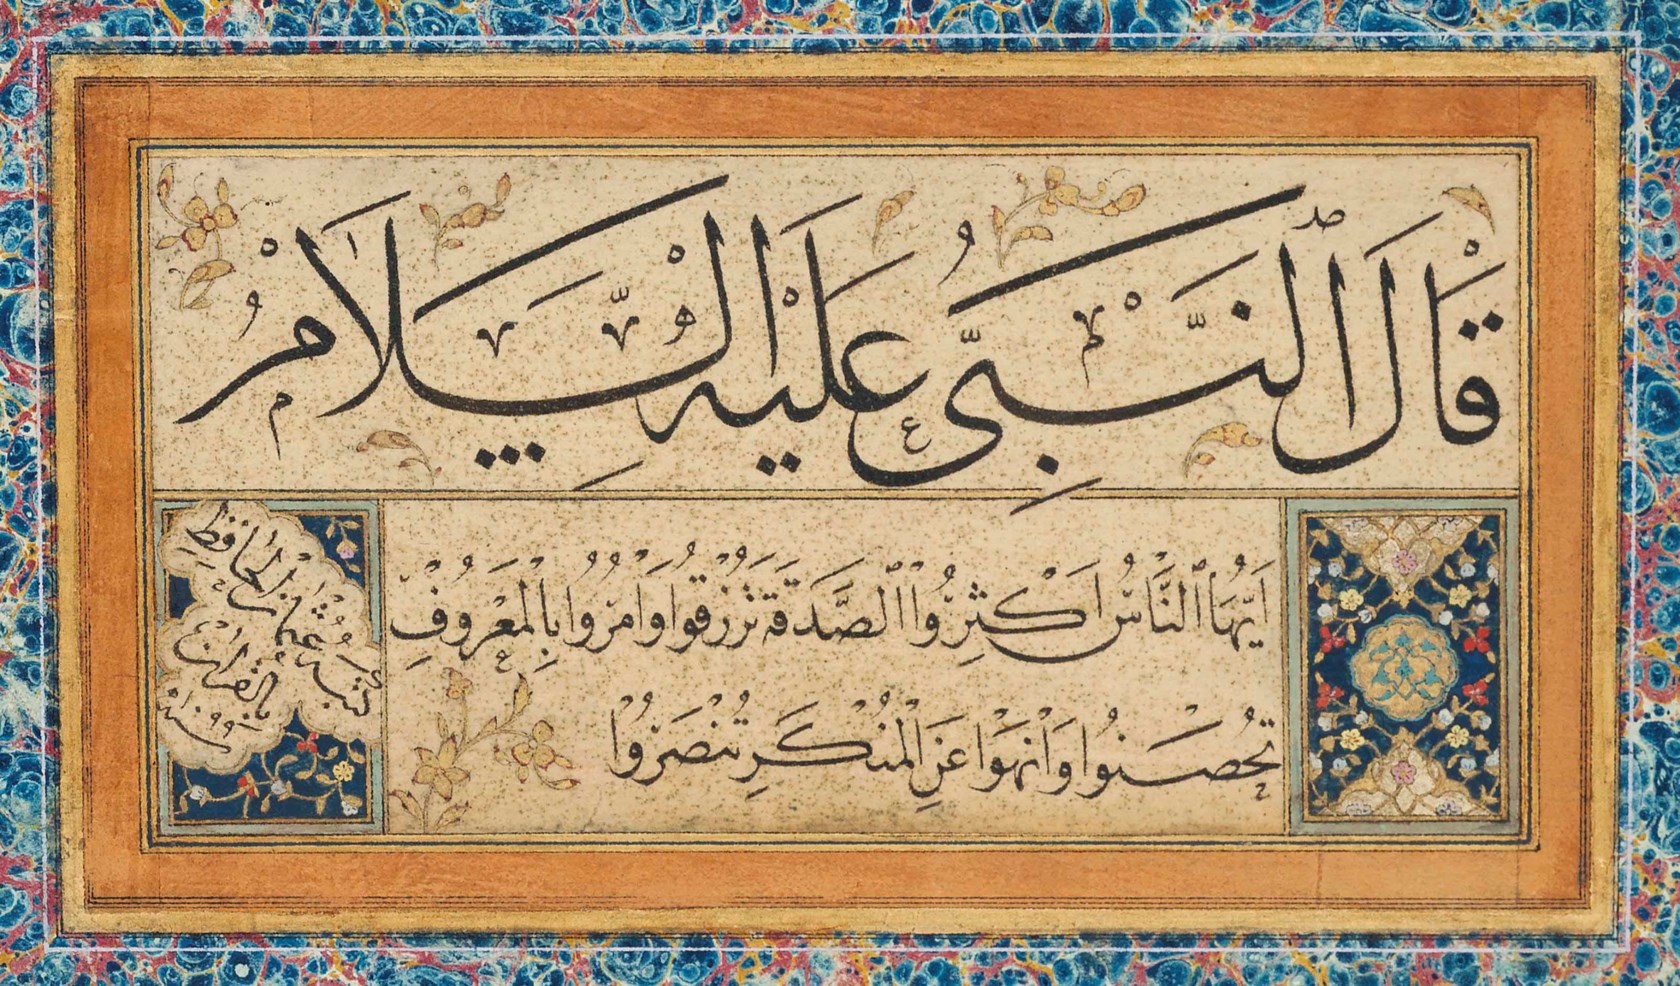 قَالَ النَّبِيُّ عَلَيْهِ السَّلَامُ
اَيُّهَا النَّاسُ اَكْثِرُوا الصَّدَقَةَ تُرْزَقُوا وَامُرُوا بِالْمَعْرُوفِ
تُحْصَنُوا وَانْهَوْا عَنِ الْمُنْكَرِ تُنْصَرُوا
كتبه عثمان الحافظ